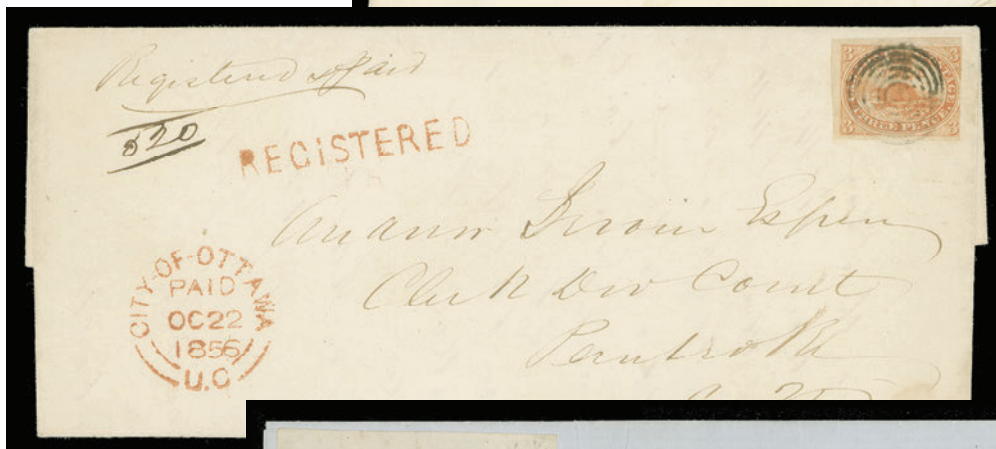 Registered & Paid
520
REGISTERED
3 3
THREE PENCE
3 3
Esquire
Clerk Div Court
Pembroke
CITY-OF-OTTAWA
PAID
OC 22
1856
U.C